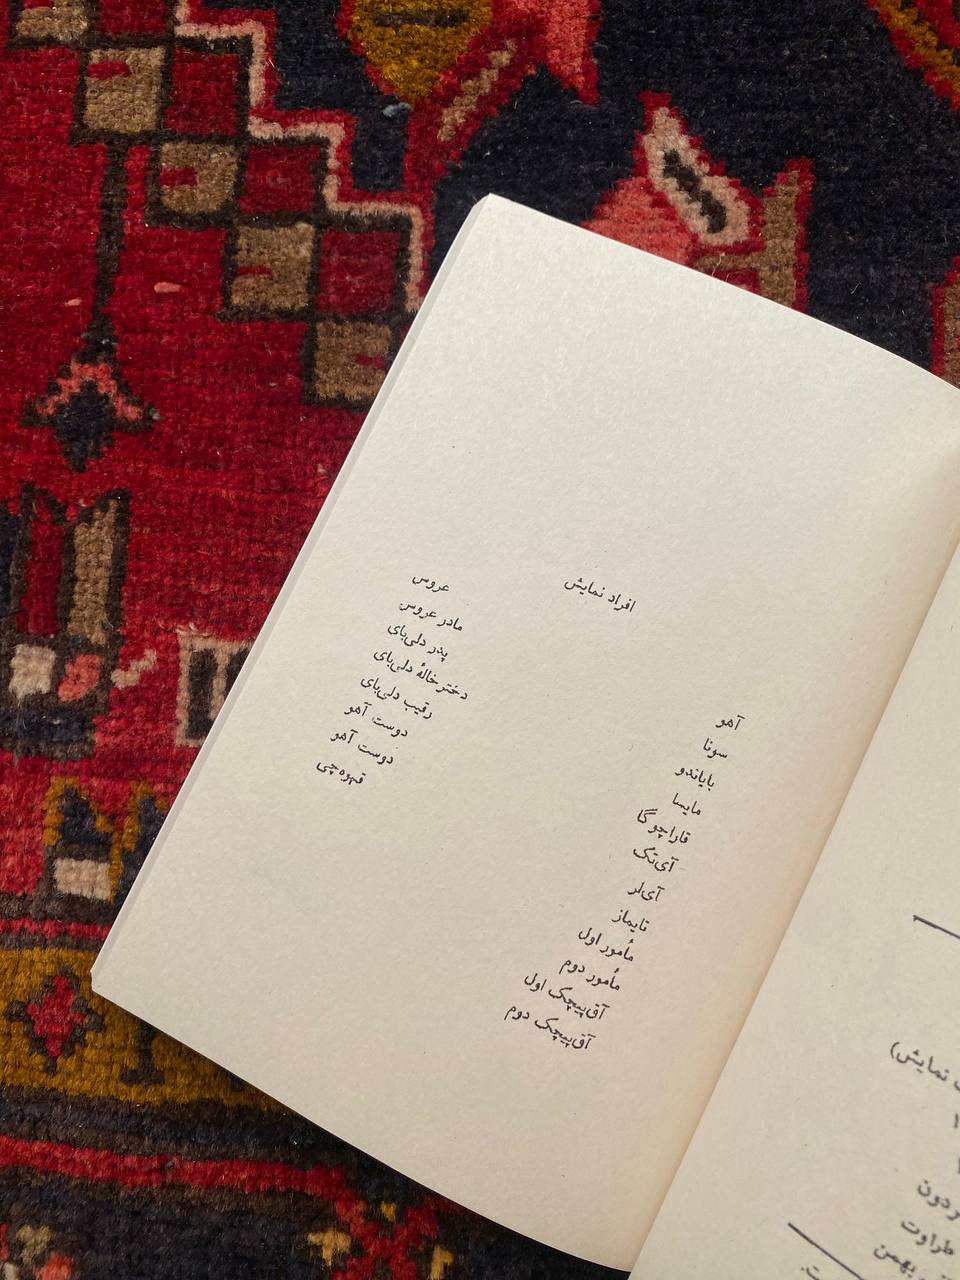 افراد نمایش
آهو
سونا
بایاندو
مایسا
قاراچوگا
آی‌تک
آی‌لر
تایماز
مأمور اول
مأمور دوم
آق‌پیچک اول
آق‌پیچک دوم
عروس
مادر عروس
پدر دلی‌بای
دختر خالهٔ دلی‌بای
رقیب دلی‌بای
دوست آهو
دوست آهو
قهوه‌چی
نمایش)
طراوت
بهمن